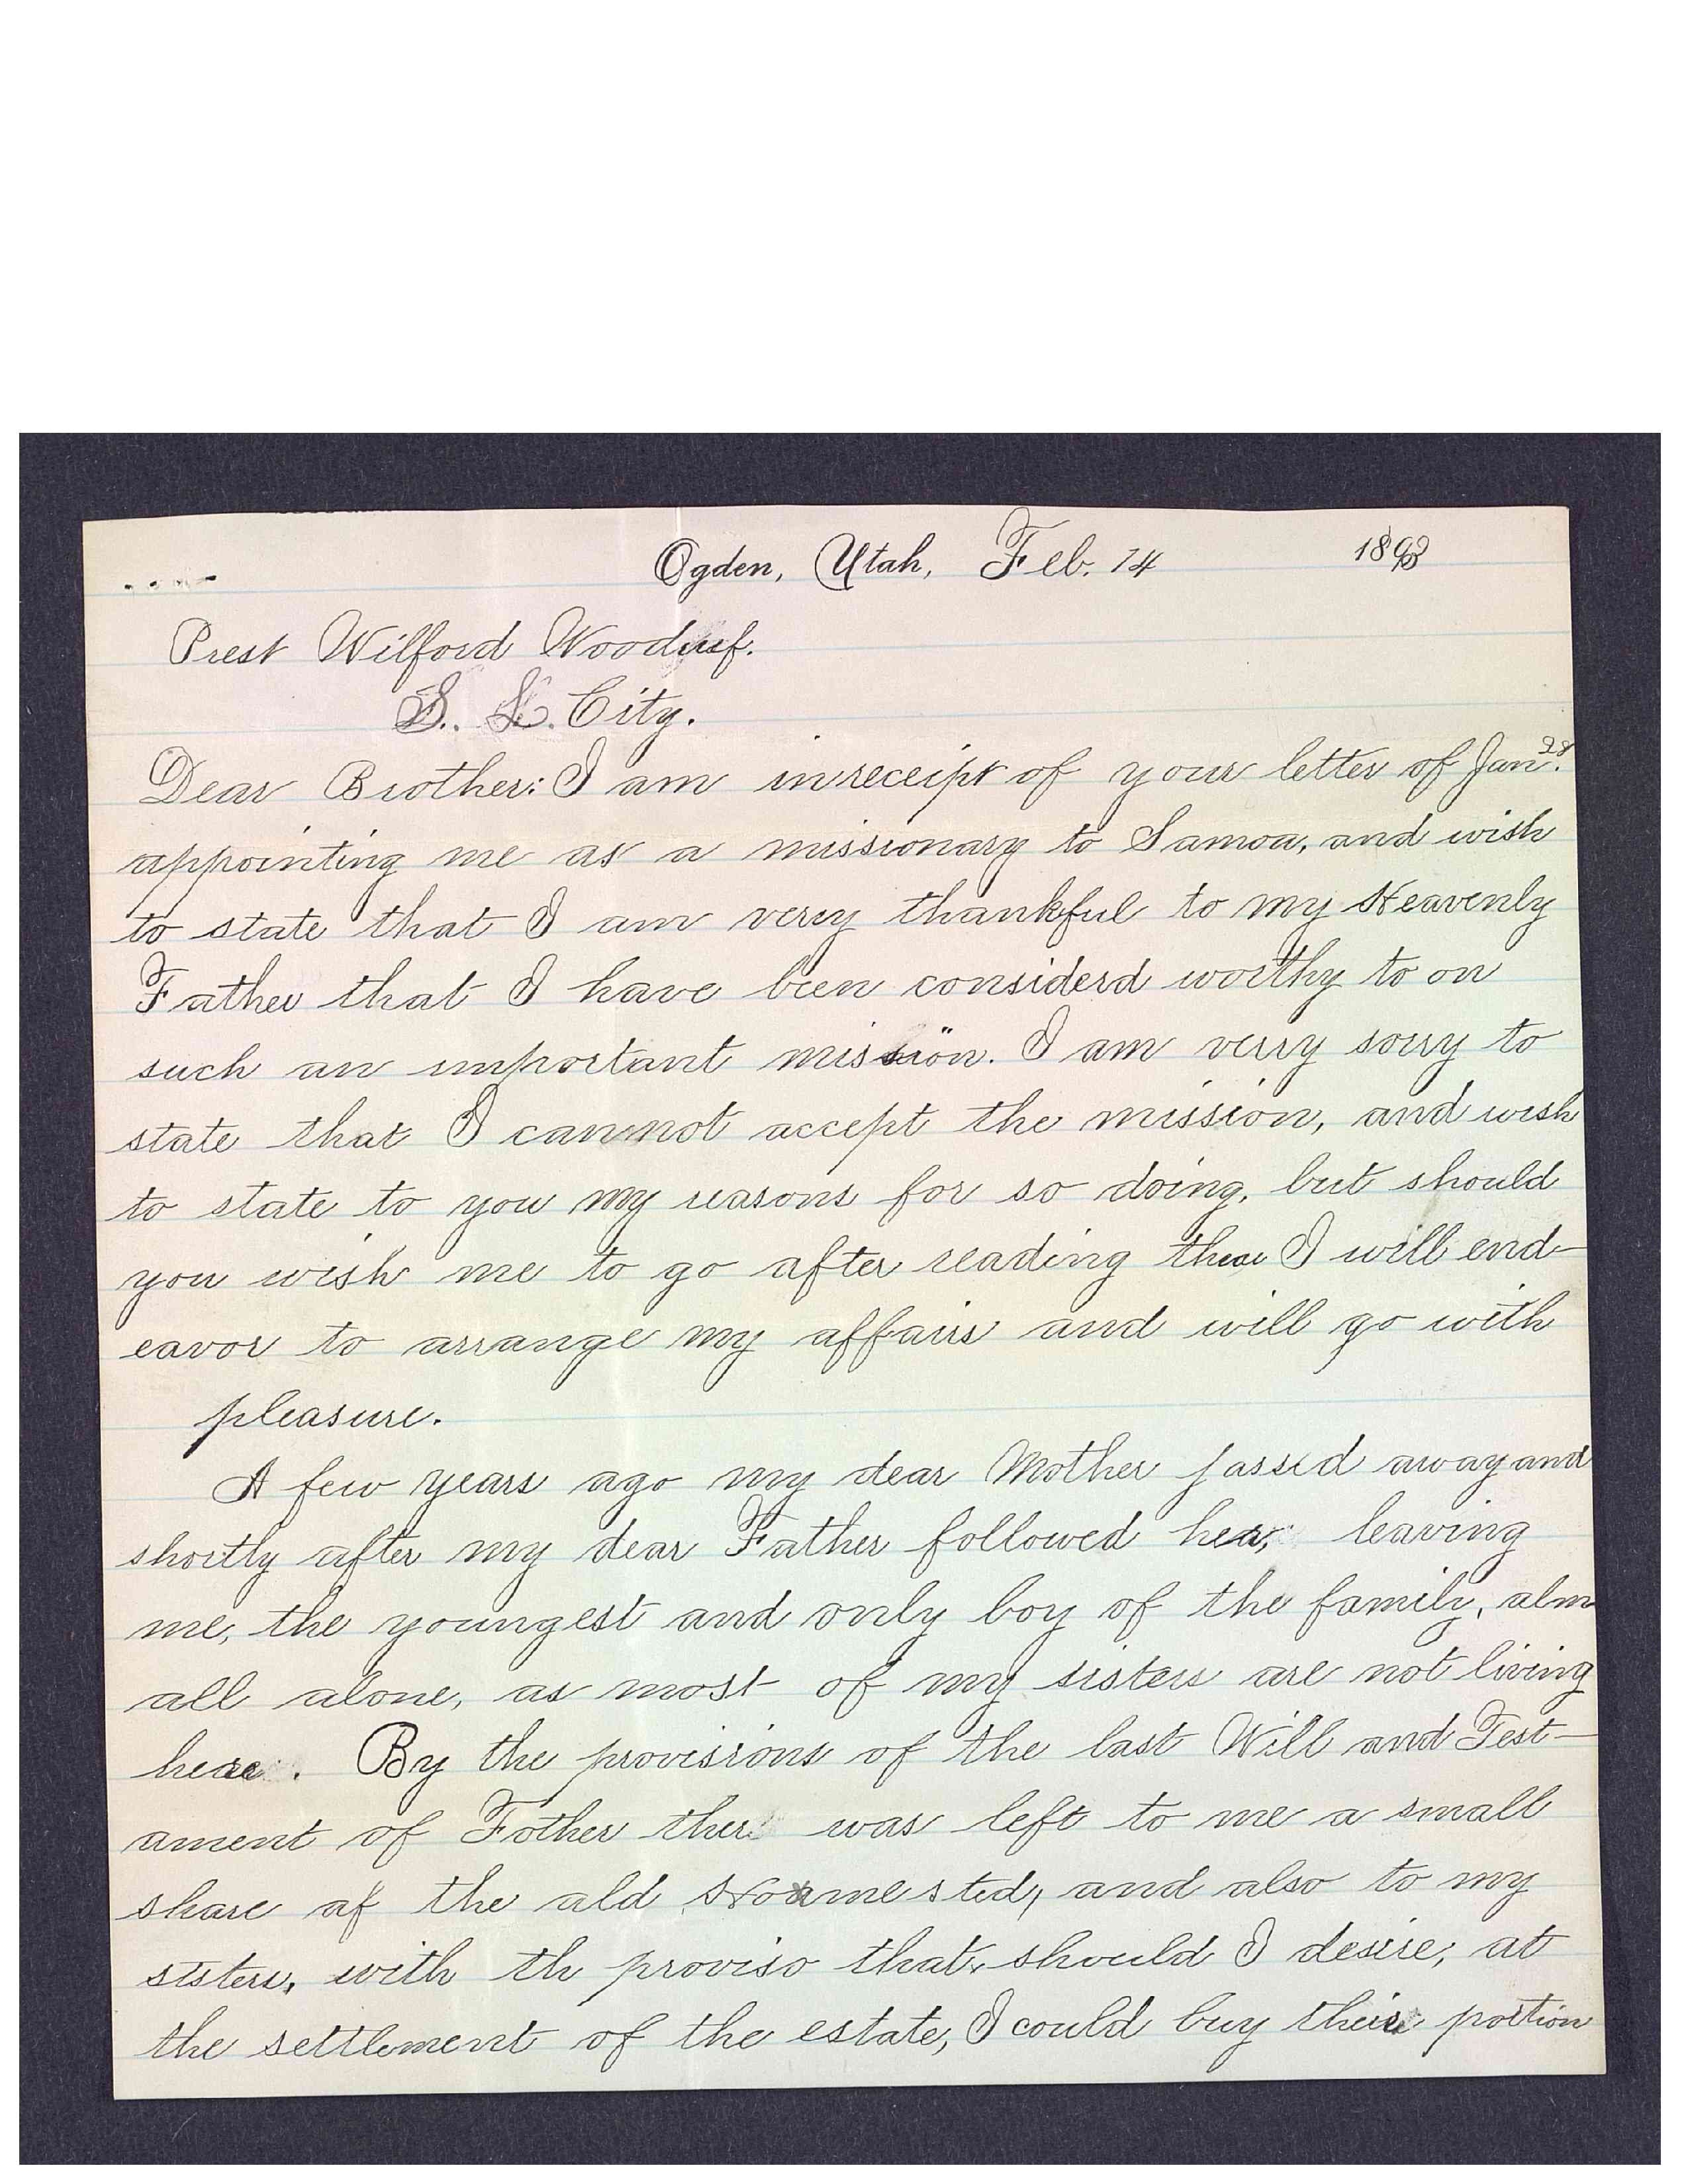 Ogden, Utah, Feb. 14 1893
Prest Wilford Woodruf.
S. L. City.
Dear Brother: I am in receipt of your letter of Jan. 28
appointing me as a missionary to Samoa, and wish
to state that I am very thankful to my Heavenly
Father that I have been considerd worthy to on
such an important mission. I am very sorry to
state that I cannot accept the mission, and wish
to state to you my reasons for so doing, but should
you wish me to go after reading these I will end-
eavor to arrange my affairs and will go with
pleasure.
A few years ago my dear Mother passed away and
shortly after my dear Father followed her, leaving
me, the youngest and only boy of the family, alm
all alone, as most of my sisters are not living
here. By the provisions of the last Will and Test-
ament of Father ther was left to me a small
share of the old Homested, and also to my
sisters, with th proviso that, should I desire, at
the settlement of the estate, I could buy their portion